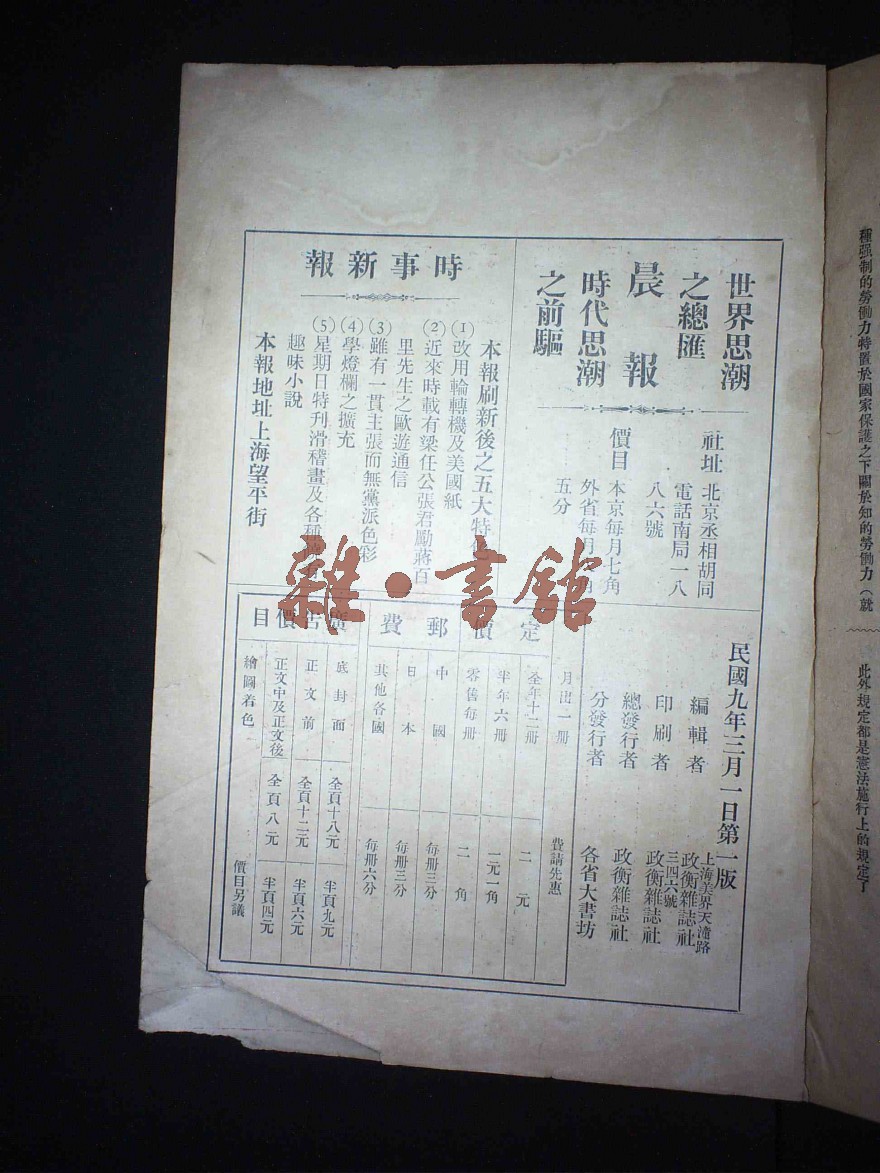 世界思潮
之總匯
晨報
時代思潮
之前驅
社址 北京丞相胡同
電話南局一八
八六號
價目 本京每月七角
外省每月
五分
時事新報
本報刷新後之五大特
(1)改用輪轉機及美國紙
(2)近來時載有梁任公張君勵蔣百
里先生之歐遊通信
(3)雖有一貫主張而無黨派色彩
(4)學燈欄之擴充
(5)星期日特刋滑稽畫及各種
趣味小說
本報地址上海望平街
民國九年三月一日第一版
編輯者 上海美界天潼路三四六號 政衡雜誌社
印刷者 政衡雜誌社
總發行者 政衡雜誌社
分發行者 各省大書坊
定價郵費
月出一册 費請先惠
全年十二册 二元
半年六册 一元一角
零售每册 二角
中國 每册三分
日本 每册三分
其他各國 每册六分
廣告價目
底封面 全頁十八元 半頁九元
正文前 全頁十二元 半頁六元
正文中及正文後 全頁八元 半頁四元
繪圖着色 價目另議
雜·書館
種强制的勞働力特置於國家保護之下關於知的勞働力(就
此外規定都是憲法施行上的規定了